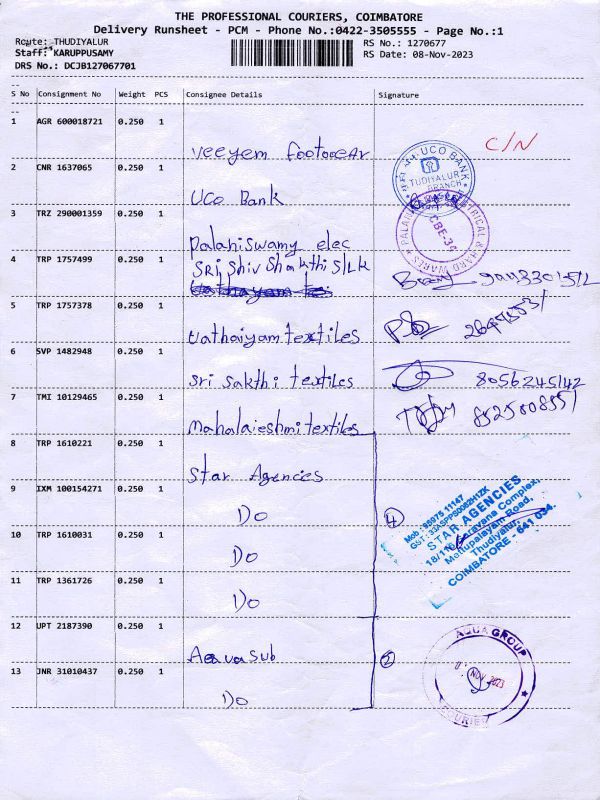 THE PROFESSIONAL COURIERS, COIMBATORE
Delivery Runsheet - PCM - Phone No.:0422-3505555 - Page No.:1
Route: THUDIYALUR
Staff: KARUPPUSAMY
DRS No.: DCJB127067701
RS No.: 1270677
RS Date: 08-Nov-2023
S No Consignment No Weight PCS Consignee Details Signature
1 AGR 600018721 0.250 1 Veeyem Footwear C/N
2 CNR 1637065 0.250 1 UCO Bank
UCO BANK
TUDIYALUR
BRANCH
3 TRZ 290001359 0.250 1 Palaniswamy elec
CBE-34
4 TRP 1757499 0.250 1 SRI Shiv Shakthi S/LK
5 TRP 1757378 0.250 1 Uathaiyam textiles
6 SVP 1482948 0.250 1 Sri Sakthi textiles 8056245142
7 TMI 10129465 0.250 1 Mahalaieshmi textiles
8 TRP 1610221 0.250 1 Star Agencies
9 IXM 100154271 0.250 1 Do
4
Mob: 95975 11147
STAR AGENCIES
Saravana Complex,
Mettupalayam Road,
Thudiyalur,
COIMBATORE - 641 034.
10 TRP 1610031 0.250 1 Do
11 TRP 1361726 0.250 1 Do
12 UPT 2187390 0.250 1 Aquasub
2
AQUA GROUP
NOV 2023
COURIER
13 JNR 31010437 0.250 1 Do